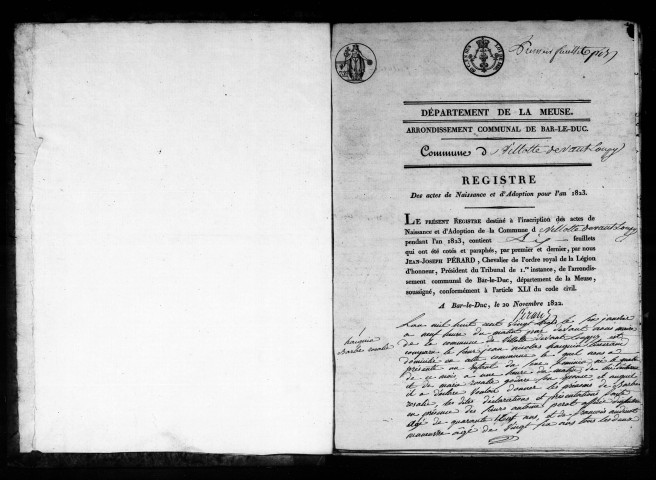 Premier feuillet
DÉPARTEMENT DE LA MEUSE.
ARRONDISSEMENT COMMUNAL DE BAR-LE-DUC.
Commune d Villotte devant Louppy
REGISTRE
Des actes de Naissance et d'Adoption pour l'an 1823.
LE PRÉSENT REGISTRE destiné à l'inscription des actes de
Naissance et d'Adoption de la Commune d Villotte devant Louppy
pendant l'an 1823, contient feuillets
qui ont été cotés et paraphés, par premier et dernier, par nous
JEAN-JOSEPH PÉRARD, Chevalier de l'ordre royal de la Légion
d'honneur, Président du Tribunal de 1.re instance, de l'arrondis-
sement communal de Bar-le-Duc, département de la Meuse,
soussigné, conformément à l'article XLI du code civil.
A Bar-le-Duc, le 20 Novembre 1822.
Pérard
L'an mil huit cent vingt trois le janvier
a neuf heure du matin par devant nous maire
de la commune de Villotte devant Louppy est
comparu le sieur jean nicolas
domicilié en cette commune le quel nous a
présenté un enfant du sexe féminin né le
de ce mois a une heure du matin de lui
et de marie rosalie son épouse et auquel
il a déclaré vouloir donner les prénoms de Barbe
rosalie, les dites déclarations et présentations faites
en présence des sieurs antoine
âgé de quarante ans, et de françois
manœuvre âgé de vingt six ans tous les deux
Barbe rosalie